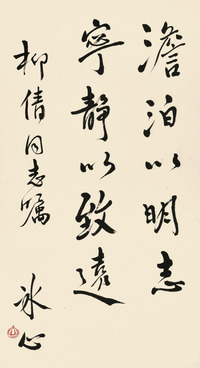 澹泊以明志
寧静以致遠
柳倩同志嘱
冰心